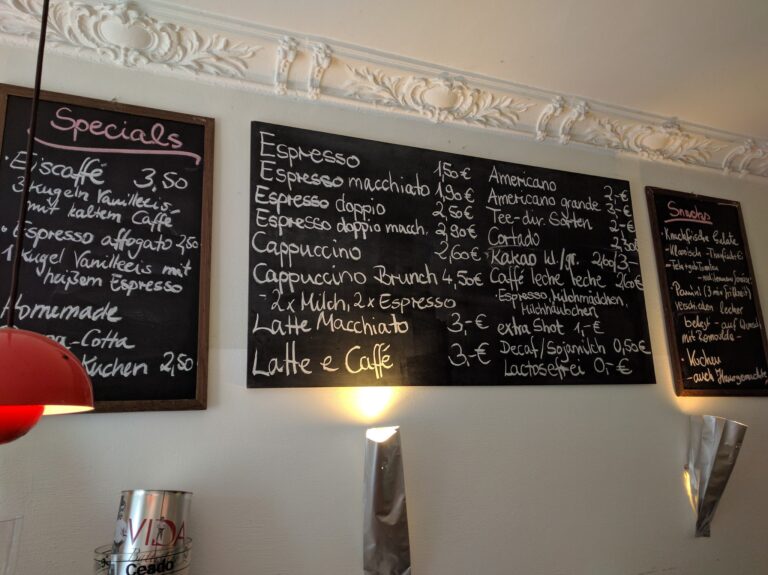 Specials
· Eiscaffé 3,50
3 Kugeln Vanilleeis
mit kaltem Caffé
· Espresso affogato 2,50
1 Kugel Vanilleeis mit
heißem Espresso
Homemade
-Cotta
Kuchen 2,50
Espresso 1,50€
Espresso macchiato 1,90€
Espresso doppio 2,50€
Espresso doppio macch. 2,90€
Cappuccino 2,60€
Cappuccino Brunch 4,50€
- 2x Milch, 2x Espresso
Latte Macchiato 3,-€
Latte e Caffé 3,-€
Americano 2,-€
Americano grande 3,-€
Tee-div. Sorten 2,-€
Cortado 2,30€
Kakao kl/gr. 2,60/3,-
Caffé leche leche 2,60€
· Espresso, Milchmädchen,
Milchhäubchen
extra Shot 1,-€
Decaf/Sojamilch 0,50€
Lactosefrei 0,-€
Snacks
· Knackfrische Salate
- Klassisch -
· Panini
belegt - auf Wunsch
mit Remoulade -
· Kuchen
- auch Hausgemachte
VIDA